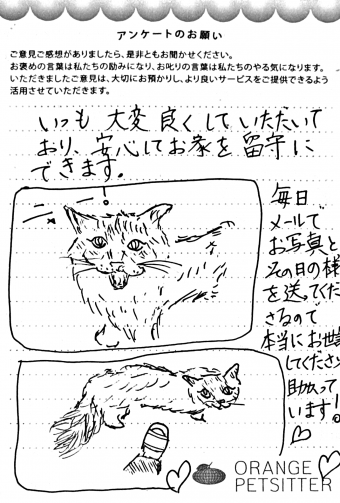 アンケートのお願い
ご意見ご感想がありましたら、是非ともお聞かせください。
お褒めの言葉は私たちの励みになり、お叱りの言葉は私たちのやる気になります。
いただきましたご意見は、大切にお預かりし、より良いサービスをご提供できるよう
活用させていただきます。
いつも 大変 良くしていただいて
おり、安心してお家を留守に
できます。
ニャー!
毎日
メールで
お写真と
その日の様
を送ってくだ
さるので
本当にお世話
してくださ
助かって
います!
ORANGE
PETSITTER